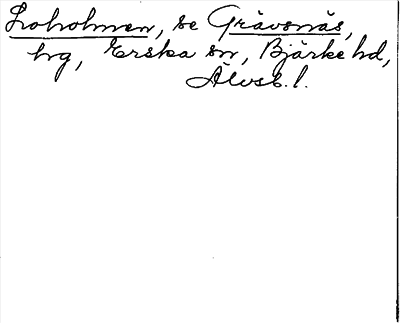 Loholmen, se Grävsnäs,
hg, Erska sn, Bjärke hd,
Älvsb. l.